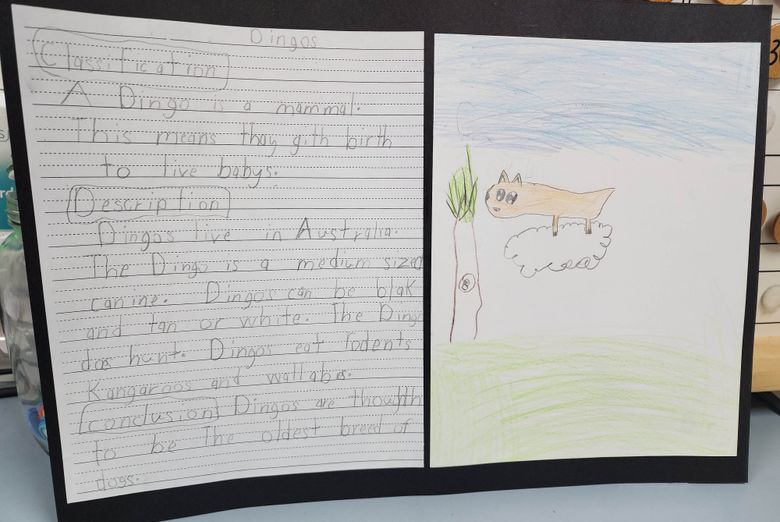 Dingos
Classification
A Dingo is a mammal.
This means thay gith birth
to live babys.
Description
Dingos live in Australia.
The Dingo is a medium sized
canine. Dingos can be blak
and tan or white. The Dingo
dos hunt. Dingos eat rodents
Kangaroos and wallabis.
conclusion Dingos are thougth
to be The oldest breed of
dogs.